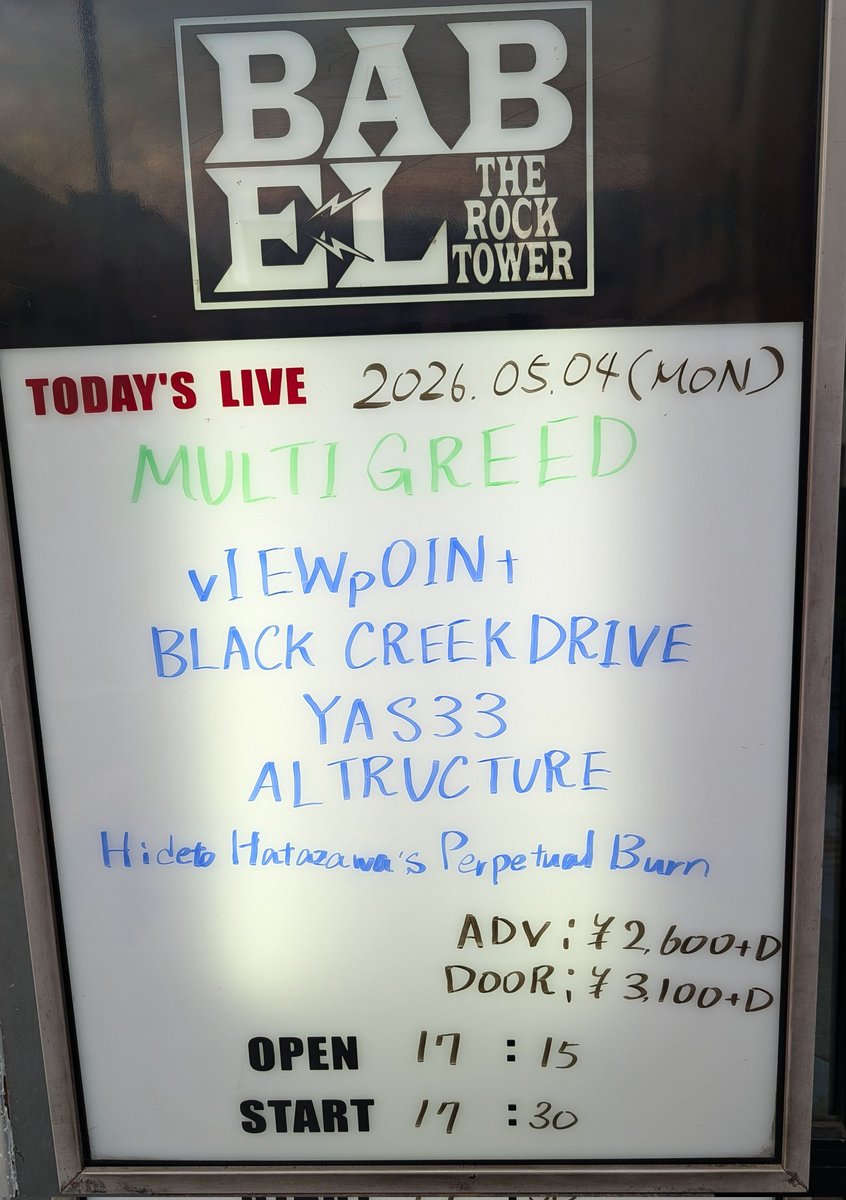 BAB
EL THE
ROCK
TOWER
TODAY'S LIVE 2026.05.04(MON)
MULTI GREED
vIEWpOINt
BLACK CREEK DRIVE
YAS33
ALTRUCTURE
Hideto Hatazawa's Perpetual Burn
ADV:¥2,600+D
DOOR:¥3,100+D
OPEN 17:15
START 17:30